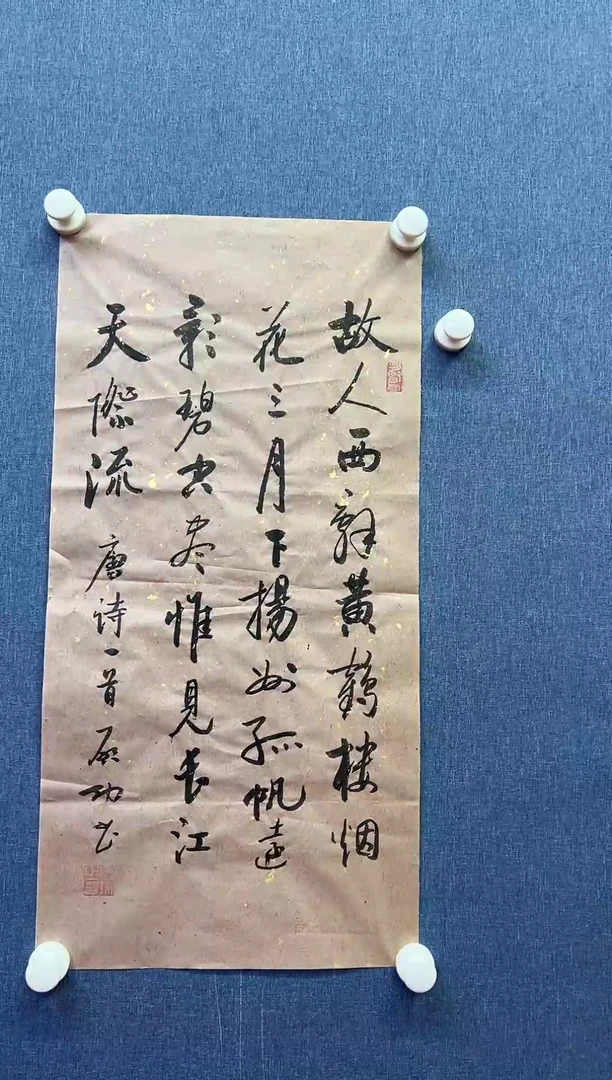 故人西辭黄鶴楼烟
花三月下揚州孤帆遠
影碧空尽惟見長江
天際流 唐诗一首 启功书